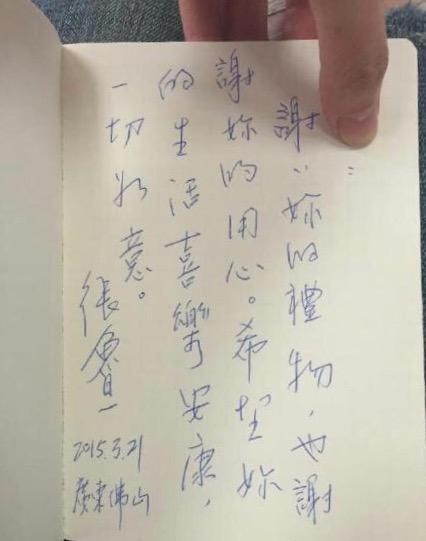 謝:妳的禮物,也謝
謝妳的用心。希望妳
的生活喜樂安康,
一切如意。
張魯一
2015.3.21
廣東佛山